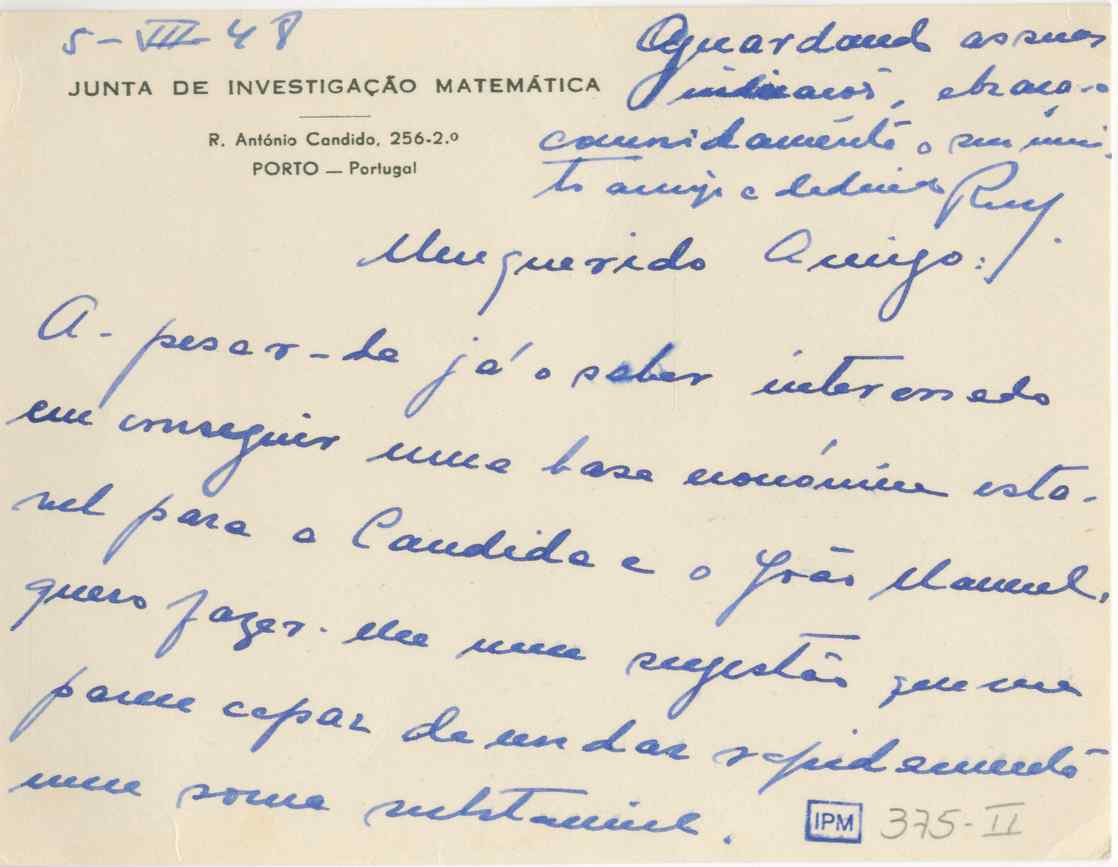 5-VII-48
JUNTA DE INVESTIGAÇÃO MATEMÁTICA
R. António Candido, 256-2.º
PORTO — Portugal
Aguardando as suas
indicações, abraça-o
comovidamente o seu mui-
to amigo e dedicado Ruy.
Meu querido Amigo:
A-pesar-de já o saber interessado
em conseguir uma base económica está-
vel para a Candida e o João Manuel,
quero fazer-lhe uma sugestão que me
parece capaz de render rapidamente
uma soma substancial.
IPM 375-II